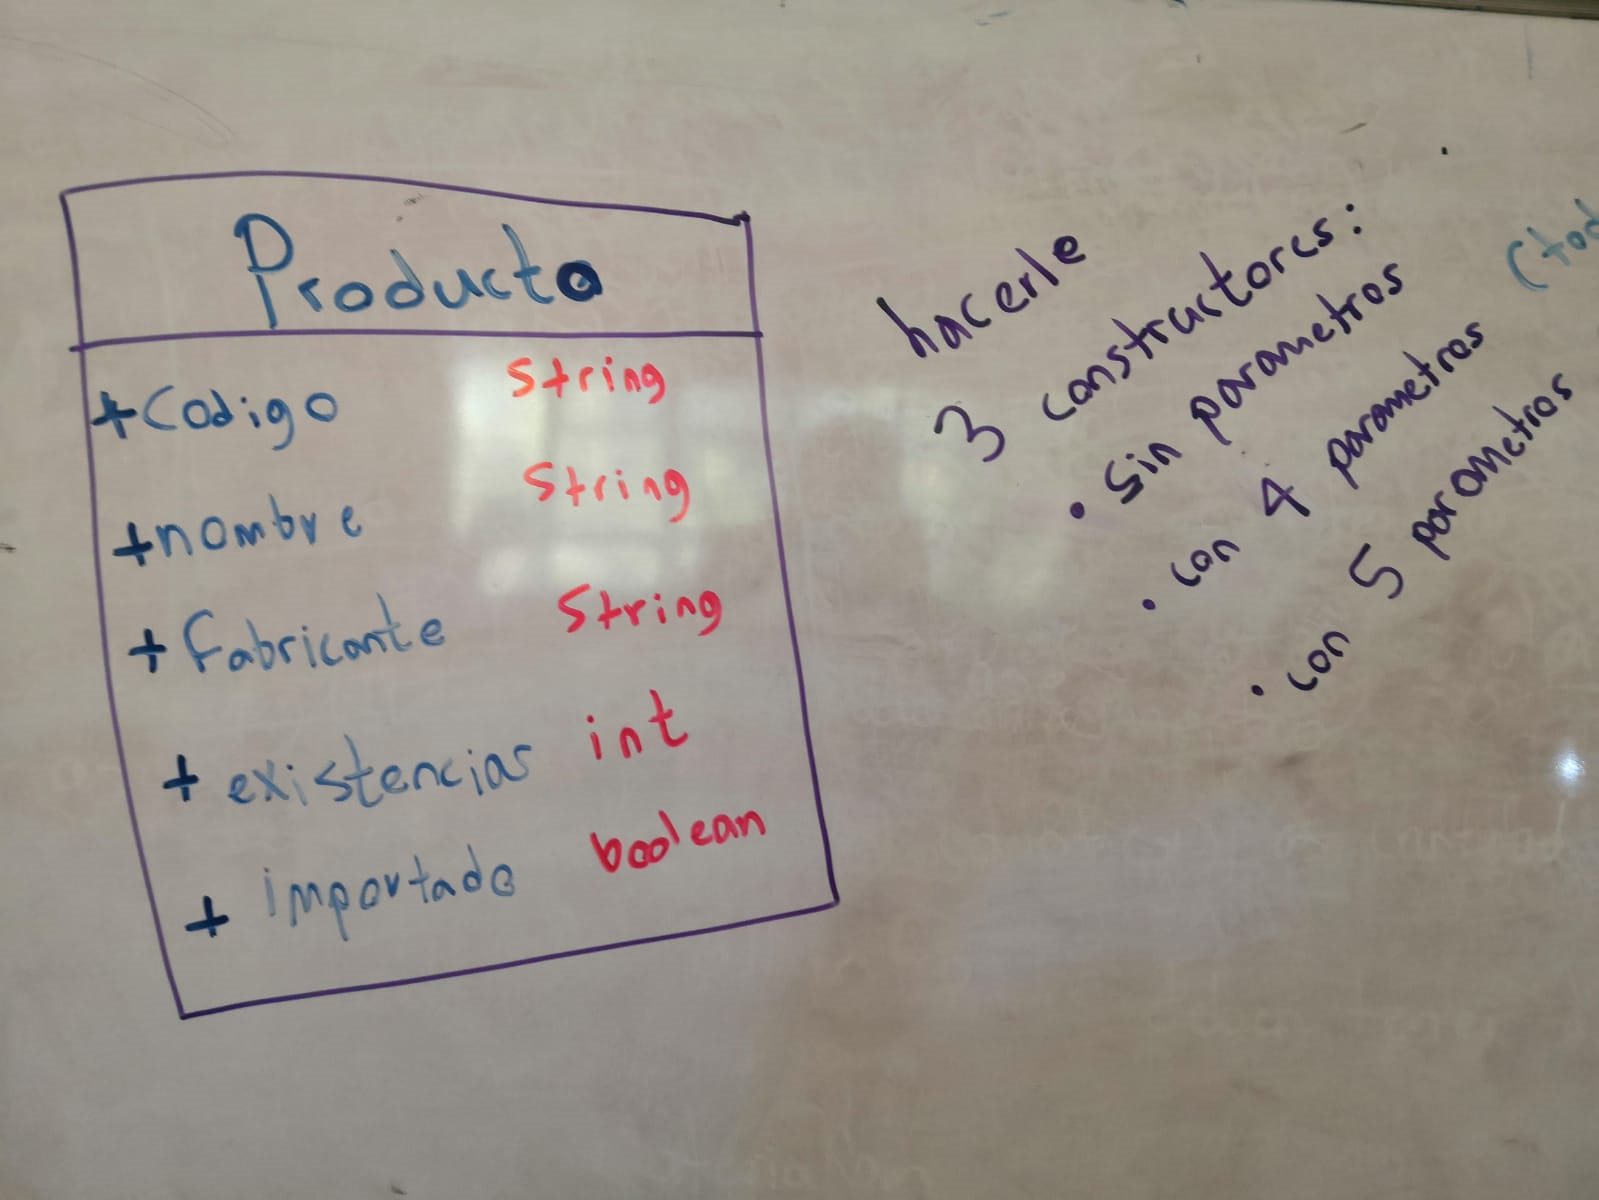 Producto
+Codigo String
+nombre String
+ fabricante String
+ existencias int
+ importado boolean
hacerle
3 constructores:
• Sin parametros
• con 4 parametros
• con 5 parametros